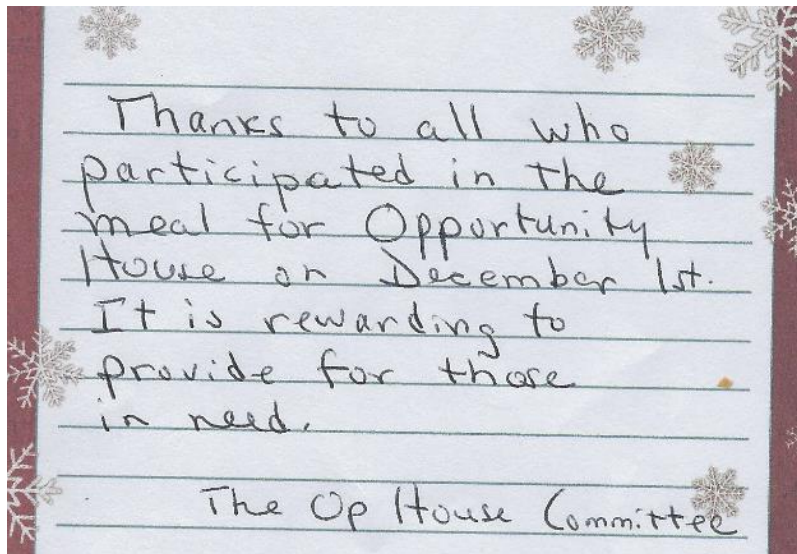 Thanks to all who
participated in the
meal for Opportunity
House on December 1st.
It is rewarding to
provide for those
in need.
The Op House Committee